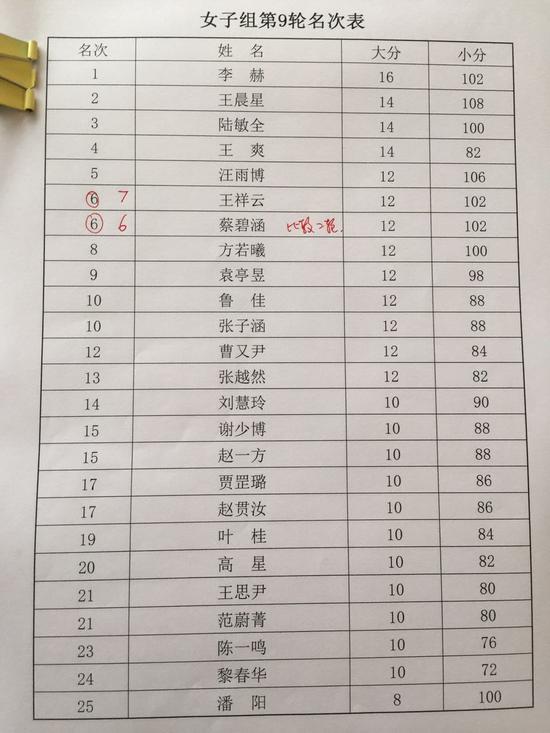 女子组第9轮名次表
名次 姓 名 大分 小分
1 李 赫 16 102
2 王晨星 14 108
3 陆敏全 14 100
4 王 爽 14 82
5 汪雨博 12 106
6 7 王祥云 12 102
6 6 蔡碧涵 比较二轮. 12 102
8 方若曦 12 100
9 袁亭昱 12 98
10 鲁 佳 12 88
10 张子涵 12 88
12 曹又尹 12 84
13 张越然 12 82
14 刘慧玲 10 90
15 谢少博 10 88
15 赵一方 10 88
17 贾罡璐 10 86
17 赵贯汝 10 86
19 叶 桂 10 84
20 高 星 10 82
21 王思尹 10 80
21 范蔚菁 10 80
23 陈一鸣 10 76
24 黎春华 10 72
25 潘 阳 8 100